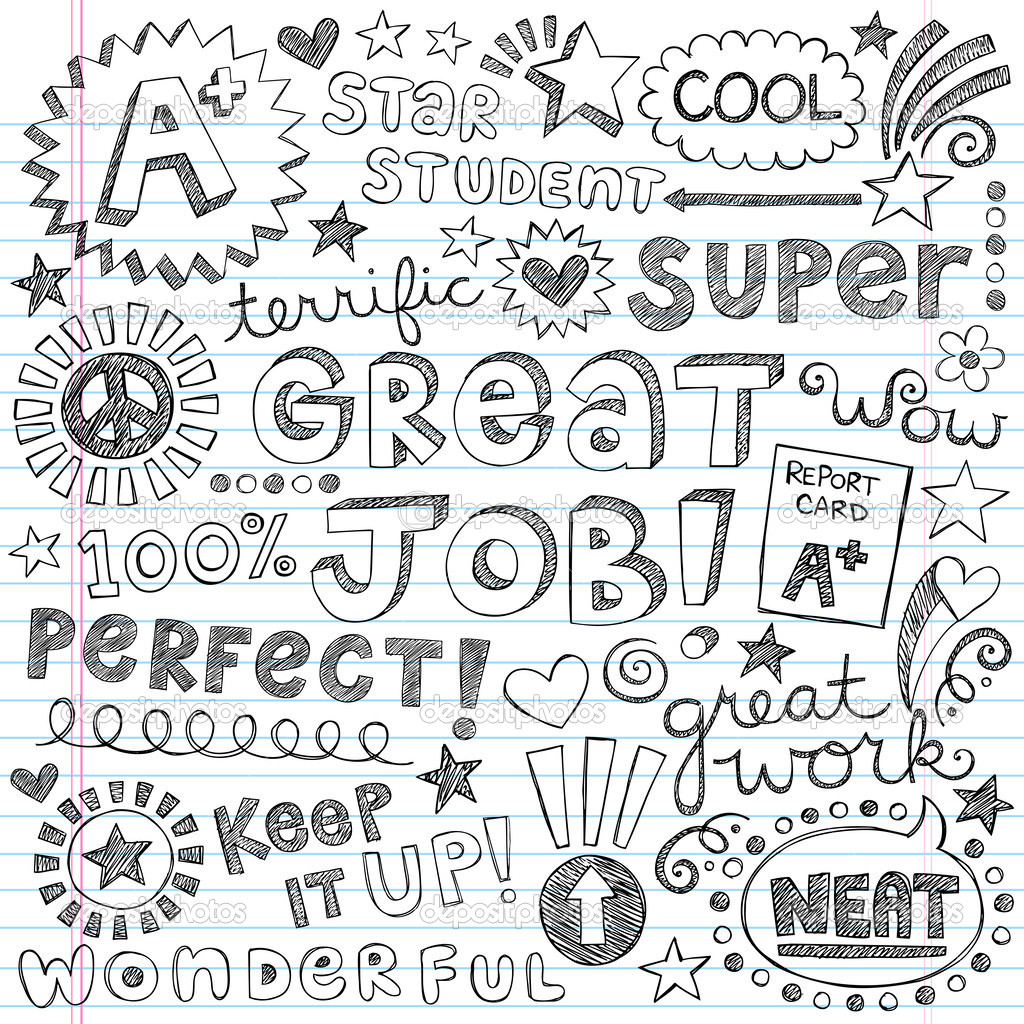 A+
STaR
STUDENT
COOL
terrific
SUPeR
GReaT
JOB!
Wow
REPORT
CARD
A+
100%
PeRFecT!
great
work
KeeP
IT UP!
NEAT
WONDERFUL
depositphotos